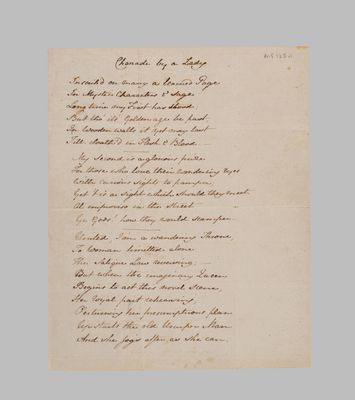 Charade by a Lady
Inscrib'd on many a learned Page
In Mystic Characters & Sage
Long time my First has stood:
But tho' its Golden age be past,
In wooden walls it yet may last
Till cloath'd in Flesh & Blood. —
My second is a glorious prize
For those who love their wandering eyes
With curious sights to pamper,
Yet 't is a sight which should they meet
All improviso in the street
Ye Gods! how they would scamper.
United, I'm a wandering Throne,
To Woman limitted alone
The Salique Law reversing;
But when the imaginary Queen
Begins to act this novel scene,
Her royal part rehearsing,
Perturning her presumptuous plan
Up starts the old Usurper Man
And she jogs after as she can.